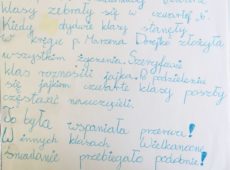 klasy zebrały się w czwartej "b".
Kiedy klasy stanęły
w kręgu p. Marzena złożyła
wszystkim życzenia. Szeregowi
klas roznosili jajka. Po podzieleniu
się jajkiem czwarte klasy poszły
częstować nauczycieli.
To była wspaniała przerwa!
W innych klasach Wielkanocne
śniadanie przebiegało podobnie!